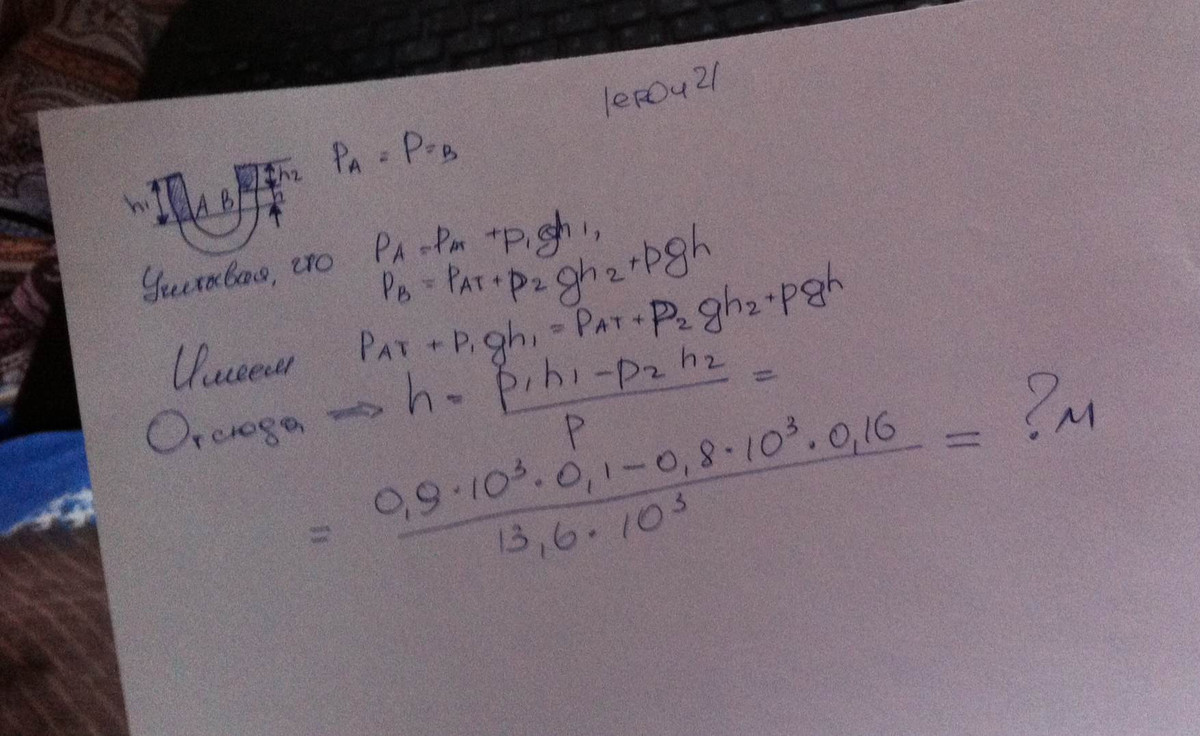 leroy21
P_A = P=_B
h₁ A B h₂ h
Учитывая, что P_A = P_AT + p₁gh₁,
P_B = P_AT + p₂gh₂ + pgh
Имеем P_AT + p₁gh₁ = P_AT + p₂gh₂ + pgh
Отсюда ⇒ h = (p₁h₁ - p₂h₂) / p =
= (0,9 · 10³ · 0,1 - 0,8 · 10³ · 0,16) / (13,6 · 10³) = ? м